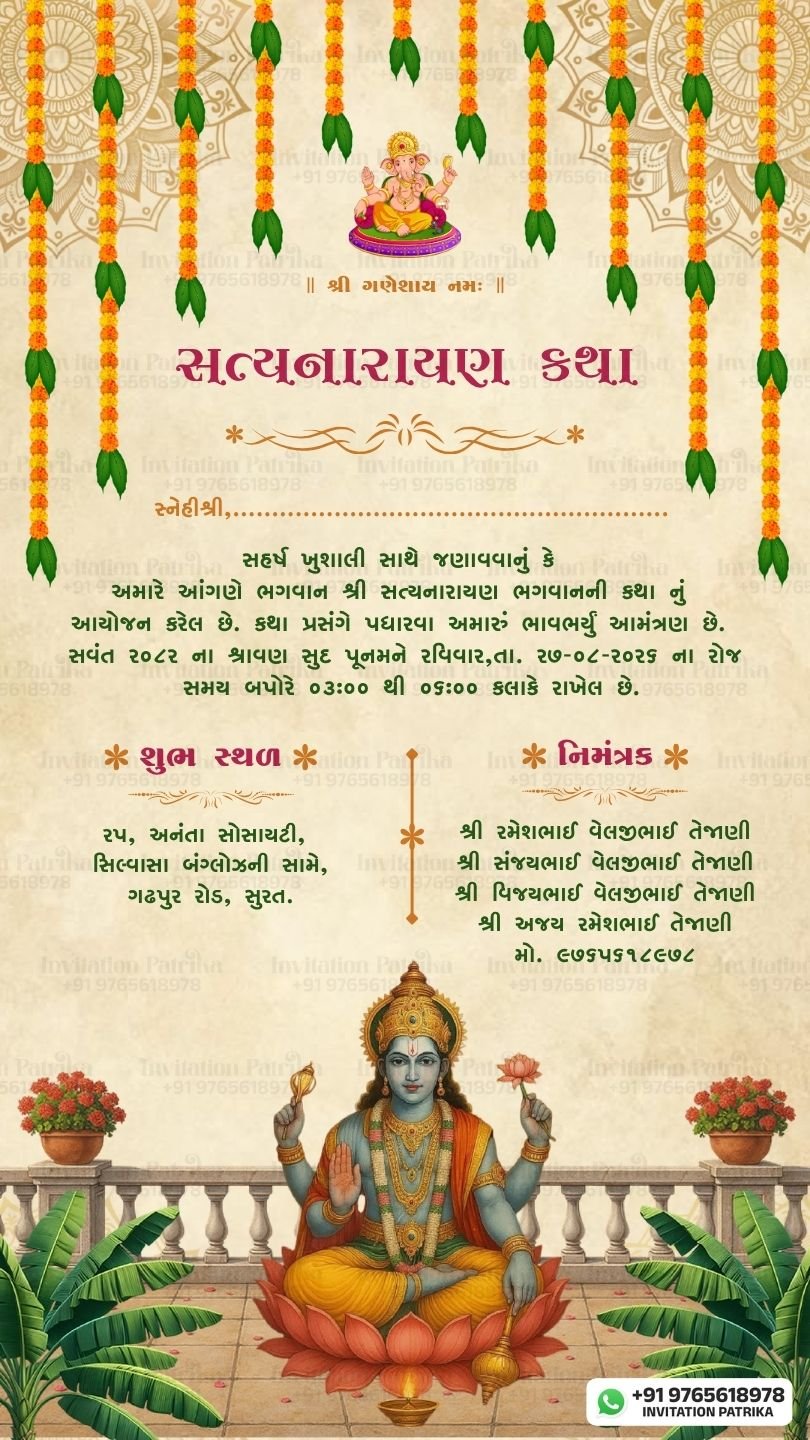 ॥ શ્રી ગણેશાય નમઃ ॥
સત્યનારાયણ કથા
સ્નેહીશ્રી,........................................................
સહર્ષ ખુશાલી સાથે જણાવવાનું કે
અમારે આંગણે ભગવાન શ્રી સત્યનારાયણ ભગવાનની કથા નું
આયોજન કરેલ છે. કથા પ્રસંગે પધારવા અમારું ભાવભર્યું આમંત્રણ છે.
સવંત ૨૦૮૨ ના શ્રાવણ સુદ પૂનમને રવિવાર,તા. ૨૭-૦૮-૨૦૨૬ ના રોજ
સમય બપોરે ૦૩:૦૦ થી ૦૬:૦૦ કલાકે રાખેલ છે.
શુભ સ્થળ
૨૫, અનંતા સોસાયટી,
સિલ્વાસા બંગ્લોઝની સામે,
ગઢપુર રોડ, સુરત.
નિમંત્રક
શ્રી રમેશભાઈ વેલજીભાઈ તેજાણી
શ્રી સંજયભાઈ વેલજીભાઈ તેજાણી
શ્રી વિજયભાઈ વેલજીભાઈ તેજાણી
શ્રી અજય રમેશભાઈ તેજાણી
મો. ૯૭૬૫૬૧૮૯૭૮
+91 9765618978
INVITATION PATRIKA
Invitation Patrika
+91 9765618978